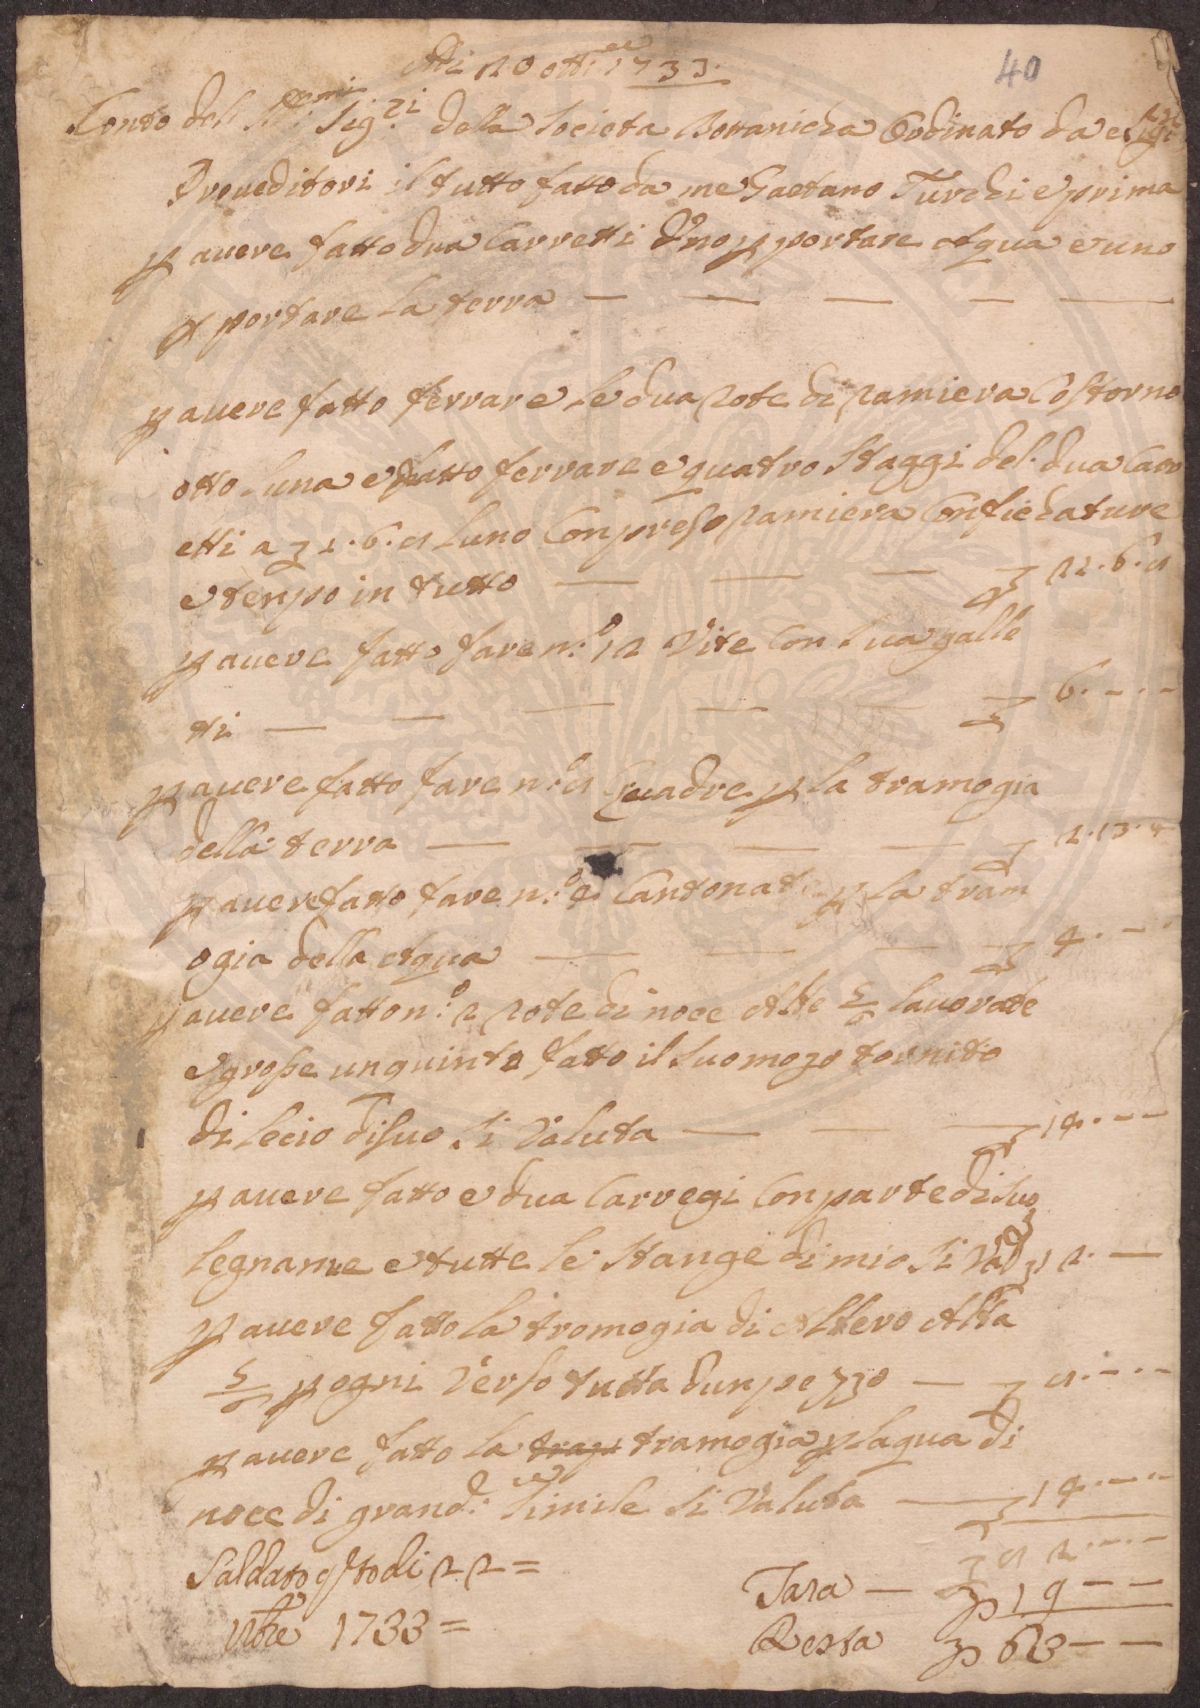 Adi 20 ott.re 1733.
40
Conto delli Ill.mi Sig.ri della Società Bottanicha Ordinato da e Sig.ri
Proveditori il tutto fatto da me Gaetano Turchi e prima
p avere fatto dua Carretti Uno p portare Aqua e uno
p portare la terra
p avere fatto ferrare le dua rote di lamiera
otto luna e fatto ferrare e quatro staggi del dua Carr
etti a luno Conpreso lamiera Conficature
e tenpo in tutto
p avere fatto fare n.o 12 Vite Con sua galle
tti — 6.--.--
p avere fatto fare n.o Squadre p la tramogia
della terra — 2.13.4
p avere fatto fare n.o 4 Cantonate p la tram
ogia della Aqua — 4.--.
p avere fatto n.o 2 rote di noce Alte 5/6 lavorate
e grosse un quinto fatto il suo mozo tornito
di lecio di suo si Valuta — 14.--
p avere fatto e dua Carregi Con parte di suo
legname e tutte le stange di mio si Val 12.--
p avere fatto la tromogia di Albero Alta
p ogni Verso tutta dun pezzo
p avere fatto la tramogia p laqua di
noce di grand.ce Simile si Valuta — 14.--.--
82.--.--
Saldato qsto di 22=
9bre 1733=
Tara — 19 — —
Resta 63 — —